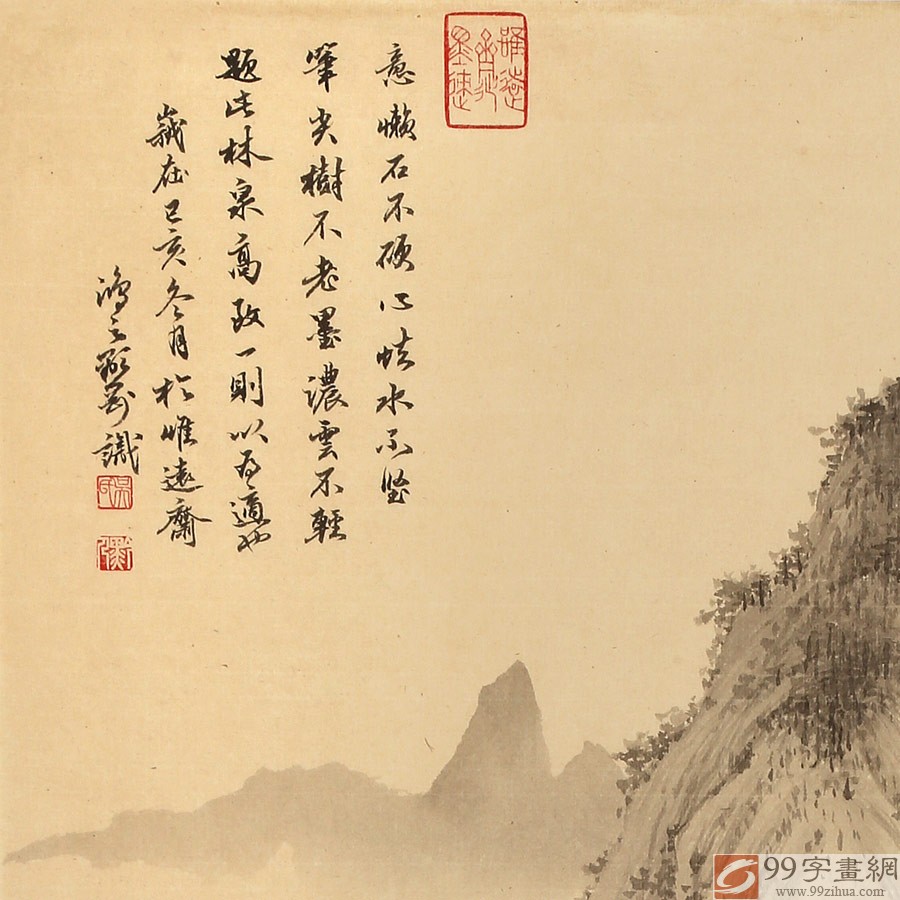 意懶石不硬心怯水不坚
筆尖樹不老墨濃雲不輕
題此林泉高致一則以為適也
歲在己亥冬月於惟遠齋
鴻之識
99字畫網
www.99zihua.com